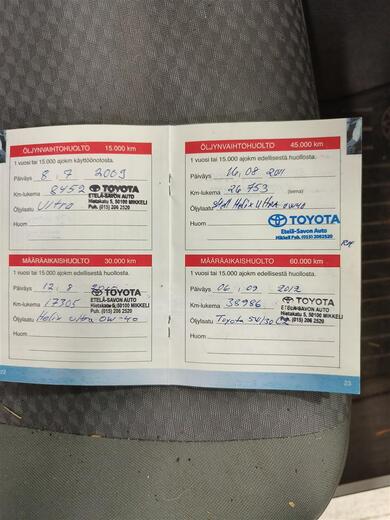 ÖLJYNVAIHTOHUOLTO 15.000 km
1 vuosi tai 15.000 ajokm käyttöönotosta.
Päiväys 8.7 2009
Km-lukema 8452
TOYOTA
ETELÄ-SAVON AUTO
Hietakatu 5, 50100 MIKKELI
Puh. (015) 206 2520
Öljylaatu Ultra
Huom
MÄÄRÄAIKAISHUOLTO 30.000 km
1 vuosi tai 15.000 ajokm edellisestä huollosta.
Päiväys 12.8
TOYOTA
ETELÄ-SAVON AUTO
Hietakatu 5, 50100 MIKKELI
Puh. (015) 206 2520
Km-lukema 17305
Öljylaatu Helix ultra 0W-40
Huom
22
ÖLJYNVAIHTOHUOLTO 45.000 km
1 vuosi tai 15.000 ajokm edellisestä huollosta.
Päiväys 16.08 2011
Km-lukema 26753 (leima)
Öljylaatu Helix Ultra 0W40
TOYOTA
Etelä-Savon Auto
Mikkeli Puh. (015) 2062520
Huom
MÄÄRÄAIKAISHUOLTO 60.000 km
1 vuosi tai 15.000 ajokm edellisestä huollosta.
Päiväys 06.09 2012
Km-lukema 38986
TOYOTA
ETELÄ-SAVON AUTO
Hietakatu 5, 50100 MIKKELI
Puh. (015) 206 2520
Öljylaatu Toyota 5W/30
Huom
23